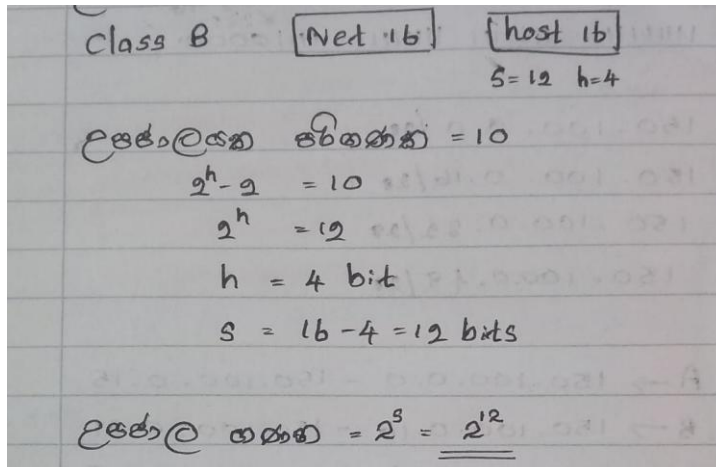 Class B Net 16 host 16
S= 12 h=4
උපජාලයක පරිගණක = 10
2^h - 2 = 10
2^h = 12
h = 4 bit
S = 16 - 4 = 12 bits
උපජාල ගණන = 2^S = 2^12